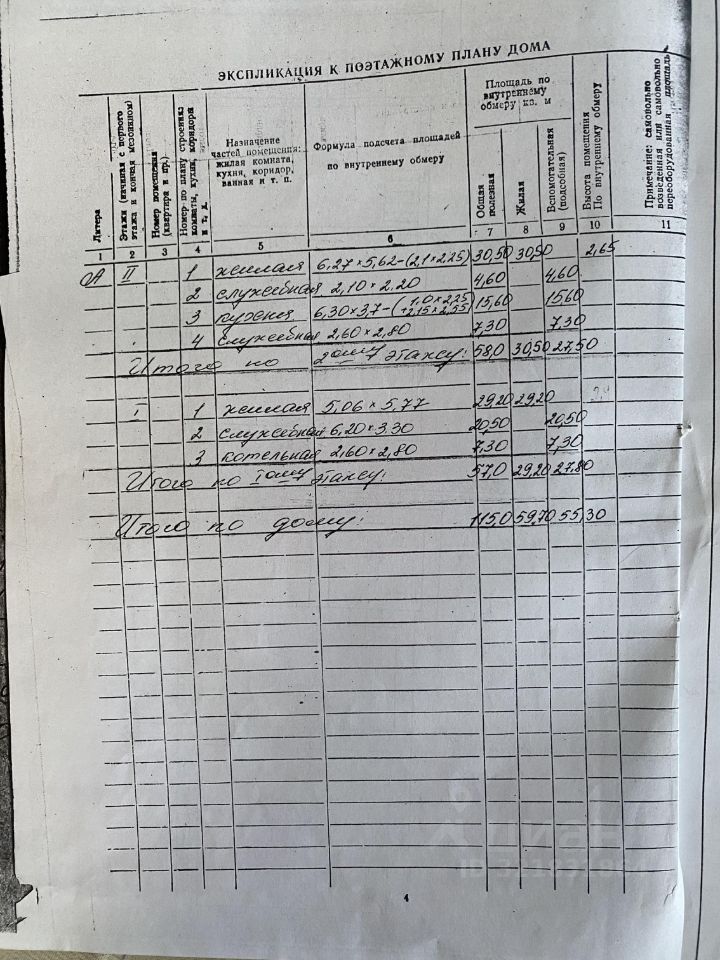 ЭКСПЛИКАЦИЯ К ПОЭТАЖНОМУ ПЛАНУ ДОМА
Литера
Этажи (начиная с первого этажа и кончая мезонином)
Номер помещения (квартира и пр.)
Номер по плану строения: комнаты, кухни, коридора и т. д.
Назначение частей помещения: жилая комната, кухня, коридор, ванная и т. п.
Формула подсчета площадей по внутреннему обмеру
Площадь по внутреннему обмеру кв. м
Общая полезная
Жилая
Вспомогательная (подсобная)
Высота помещения По внутреннему обмеру
Примечание: самовольно возведенная или самовольно переоборудованная площадь
1 2 3 4 5 6 7 8 9 10 11
А II 1 жилая 6,27×5,62-(2,1×2,25) 30,50 30,50 2,65
2 служебная 2,10×2,20 4,60 4,60
3 кухня 6,30×3,7-(1,0×2,25 +2,15×2,55) 15,60 15,60
4 служебная 2,60×2,80 7,30 7,30
Итого по 2ому этажу: 58,0 30,50 27,50
I 1 жилая 5,06×5,77 29,20 29,20
2 служебная 6,20×3,30 20,50 20,50
3 котельная 2,60×2,80 7,30 7,30
Итого по Iому этажу: 57,0 29,20 27,80
Итого по дому: 115,0 59,70 55,30
4